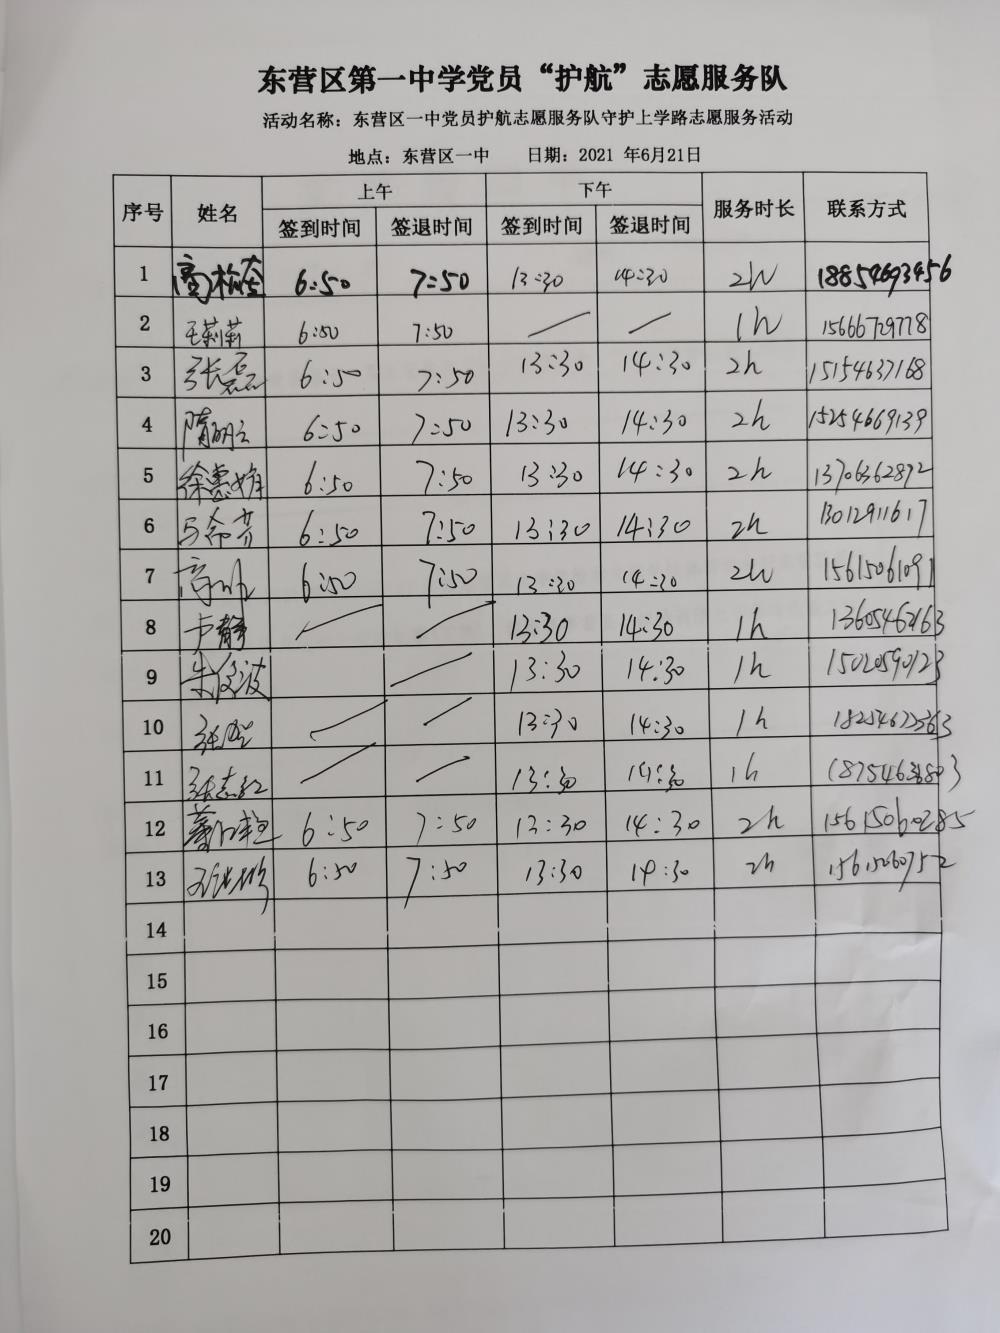 东营区第一中学党员“护航”志愿服务队
活动名称：东营区一中党员护航志愿服务队守护上学路志愿服务活动
地点：东营区一中 日期：2021 年6月21日
序号 姓名 上午 下午 服务时长 联系方式
签到时间 签退时间 签到时间 签退时间
1 6:50 7:50 13:30 14:30 2h 18854693456
2 王莉莉 6:50 7:50 1h 15666729778
3 张磊 6:50 7:50 13:30 14:30 2h 15154637168
4 6:50 7:50 13:30 14:30 2h 15254669139
5 徐惠娟 6:50 7:50 13:30 14:30 2h 13706362892
6 马希芳 6:50 7:50 13:30 14:30 2h 13012911617
7 6:50 7:50 13:30 14:30 2h 15615061091
8 卢静 13:30 14:30 1h 13605462163
9 朱俊波 13:30 14:30 1h
10 13:30 14:30 1h
11 张志红 13:30 14:30 1h
12 6:50 7:50 13:30 14:30 2h 15615060285
13 6:50 7:50 13:30 14:30 2h
14
15
16
17
18
19
20